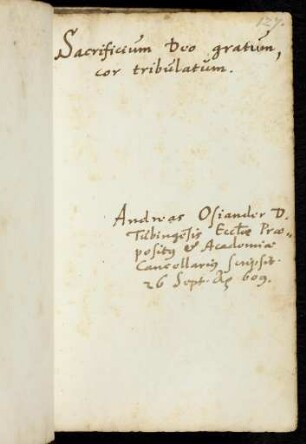 127.
Sacrificium Deo gratum,
cor tribulatum.
Andreas Osiander D.
Tübingēsis Ecclæ Præ=
positꝰ & Academiæ
Cancellarius scripsit
26 Sept. Aō 609.